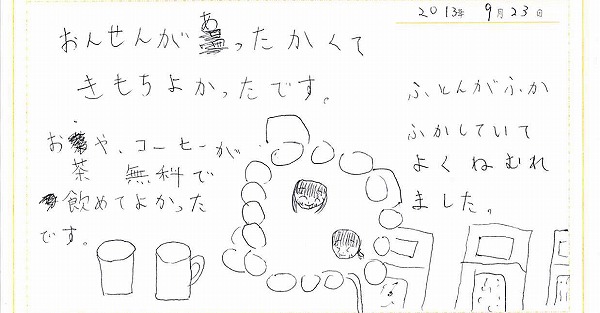 2013年 9月23日
おんせんがあったかくて
きもちよかったです。
ふとんがふか
ふかしていて
よくねむれ
ました。
お茶や、コーヒーが
無料で
飲めてよかった
です。